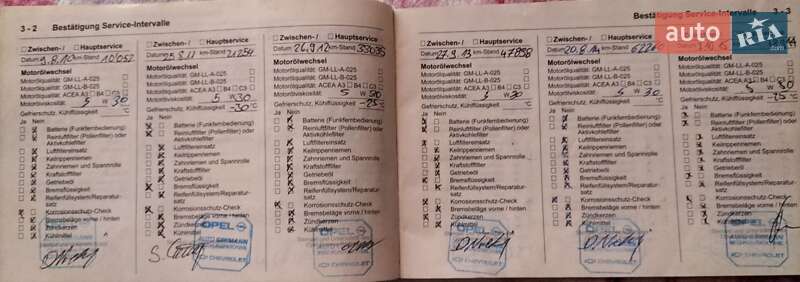 3 - 2 Bestätigung Service-Intervalle
Zwischen- / Hauptservice
Datum 1.8.10 km-Stand 10052
Motorölwechsel
Motorölqualität: GM-LL-A-025
Motorölqualität: GM-LL-B-025
Motorölqualität: ACEA A3 B4 C3
Motorölviskosität: 5 W 30
Gefrierschutz, Kühlflüssigkeit: °C
Ja Nein
Batterie (Funkfernbedienung)
Reinluftfilter (Pollenfilter) oder
Aktivkohlefilter
Luftfiltereinsatz
Keilrippenriemen
Zahnriemen und Spannrolle
Kraftstofffilter
Getriebeöl
Bremsflüssigkeit
Reifenfüllsystem/Reparatur-
satz
Korrosionsschutz-Check
Bremsbeläge vorne / hinten
Zündkerzen
Kühlmittel
Zwischen- / Hauptservice
km-Stand 21254
Motorölwechsel
Motorölqualität: GM-LL-A-025
Motorölqualität: GM-LL-B-025
Motorölqualität: ACEA A3 B4 C3
Motorölviskosität: 5 W 30
Gefrierschutz, Kühlflüssigkeit: -30 °C
Ja Nein
Batterie (Funkfernbedienung)
Reinluftfilter (Pollenfilter) oder
Aktivkohlefilter
Luftfiltereinsatz
Keilrippenriemen
Zahnriemen und Spannrolle
Kraftstofffilter
Getriebeöl
Bremsflüssigkeit
Reifenfüllsystem/Reparatur-
satz
Korrosionsschutz-Check
Bremsbeläge vorne / hinten
Zündkerzen
Kühlmittel
OPEL
CHEVROLET
Zwischen- / Hauptservice
Datum 26.9.12 km-Stand 33035
Motorölwechsel
Motorölqualität: GM-LL-A-025
Motorölqualität: GM-LL-B-025
Motorölqualität: ACEA A3 B4 C3
Motorölviskosität: 5 W 30
Gefrierschutz, Kühlflüssigkeit: -25 °C
Ja Nein
Batterie (Funkfernbedienung)
Reinluftfilter (Pollenfilter) oder
Aktivkohlefilter
Luftfiltereinsatz
Keilrippenriemen
Zahnriemen und Spannrolle
Kraftstofffilter
Getriebeöl
Bremsflüssigkeit
Reifenfüllsystem/Reparatur-
satz
Korrosionsschutz-Check
Bremsbeläge vorne / hinten
Zündkerzen
Kühlmittel
OPEL
CHEVROLET
Bestätigung Service-Intervalle 3 - 3
Zwischen- / Hauptservice
Datum 27.9.13 km-Stand 47858
Motorölwechsel
Motorölqualität: GM-LL-A-025
Motorölqualität: GM-LL-B-025
Motorölqualität: ACEA A3 B4 C3
Motorölviskosität: 5 W 30
Gefrierschutz, Kühlflüssigkeit: °C
Ja Nein
Batterie (Funkfernbedienung)
Reinluftfilter (Pollenfilter) oder
Aktivkohlefilter
Luftfiltereinsatz
Keilrippenriemen
Zahnriemen und Spannrolle
Kraftstofffilter
Getriebeöl
Bremsflüssigkeit
Reifenfüllsystem/Reparatur-
satz
Korrosionsschutz-Check
Bremsbeläge vorne / hinten
Zündkerzen
Kühlmittel
OPEL
CHEVROLET
Zwischen- / Hauptservice
Datum 20.8.14 km-Stand
Motorölwechsel
Motorölqualität: GM-LL-A-025
Motorölqualität: GM-LL-B-025
Motorölqualität: ACEA A3 B4 C3
Motorölviskosität: 5 W 30
Gefrierschutz, Kühlflüssigkeit: °C
Ja Nein
Batterie (Funkfernbedienung)
Reinluftfilter (Pollenfilter) oder
Aktivkohlefilter
Luftfiltereinsatz
Keilrippenriemen
Zahnriemen und Spannrolle
Kraftstofffilter
Getriebeöl
Bremsflüssigkeit
Reifenfüllsystem/Reparatur-
satz
Korrosionsschutz-Check
Bremsbeläge vorne / hinten
Zündkerzen
Kühlmittel
OPEL
CHEVROLET
Motorölwechsel
Motorölqualität: GM-LL-A-025
Motorölqualität: GM-LL-B-025
Motorölqualität: ACEA A3 B4 C3
Motorölviskosität: 5 W 30
Gefrierschutz, Kühlflüssigkeit: -25 °C
Ja Nein
Batterie (Funkfernbedienung)
Reinluftfilter (Pollenfilter) oder
Aktivkohlefilter
Luftfiltereinsatz
Keilrippenriemen
Zahnriemen und Spannrolle
Kraftstofffilter
Getriebeöl
Bremsflüssigkeit
Reifenfüllsystem/Reparatur-
satz
Korrosionsschutz-Check
Bremsbeläge vorne / hinten
Zündkerzen
Kühlmittel
OPEL
CHEVROLET
auto RIA
.com